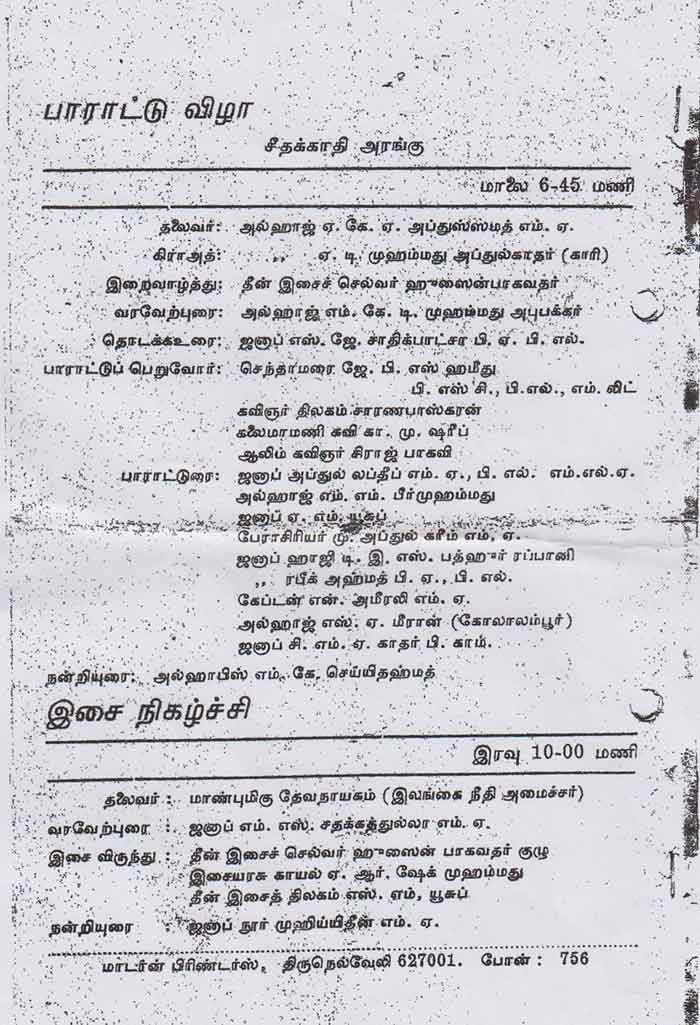 பாராட்டு விழா
சீதக்காதி அரங்கு
மாலை 6-45 மணி
தலைவர்: அல்ஹாஜ் ஏ. கே. ஏ. அப்துஸ்ஸமத் எம். ஏ.
கிராஅத்: ,, ஏ. டி. முஹம்மது அப்துல்காதர் (காரி)
இறைவாழ்த்து: தீன் இசைச் செல்வர் ஹுஸைன்பாகவதர்
வரவேற்புரை: அல்ஹாஜ் எம். கே. டி. முஹம்மது அபுபக்கர்
தொடக்கஉரை: ஜனாப் எஸ். ஜே. சாதிக்பாட்சா பி. ஏ. பி. எல்.
பாராட்டுப் பெறுவோர்: செந்தாமரை ஜே. பி. எஸ் ஹமீது
பி. எஸ் சி., பி.எல்., எம். லிட்
கவிஞர் திலகம் சாரணபாஸ்கரன்
கலைமாமணி கவி கா. மு. ஷரீப்
ஆலிம் கவிஞர் சிராஜ் பாகவி
பாராட்டுரை: ஜனாப் அப்துல் லப்தீப் எம். ஏ., பி. எல். எம்.எல்.ஏ.
அல்ஹாஜ் எம். எம். பீர்முஹம்மது
ஜனாப் ஏ. எம். யூசுப்
பேராசிரியர் மு. அப்துல் கரீம் எம், ஏ.
ஜனாப் ஹாஜி டி. இ. எஸ். பத்ஹுர் ரப்பானி
,, ரபீக் அஹ்மத் பி. ஏ., பி. எல்.
கேப்டன் என். அமீரலி எம். ஏ.
அல்ஹாஜ் எஸ். ஏ. மீரான் (கோலாலம்பூர்)
ஜனாப் சி. எம். ஏ. காதர் பி. காம்.
நன்றியுரை: அல்ஹாபிஸ் எம். கே. செய்யிதஹ்மத்
இசை நிகழ்ச்சி
இரவு 10-00 மணி
தலைவர் : மாண்புமிகு தேவநாயகம் (இலங்கை நீதி அமைச்சர்)
வரவேற்புரை : ஜனாப் எம். எஸ். சதக்கத்துல்லா எம். ஏ.
இசை விருந்து : தீன் இசைச் செல்வர் ஹுஸைன் பாகவதர் குழு
இசையரசு காயல் ஏ. ஆர். ஷேக் முஹம்மது
தீன் இசைத் திலகம் எஸ். எம், யூசுப்
நன்றியுரை : ஜனாப் நூர் முஹிய்யிதீன் எம். ஏ.
மாடர்ன் பிரிண்டர்ஸ், திருநெல்வேலி 627001. போன் : 756